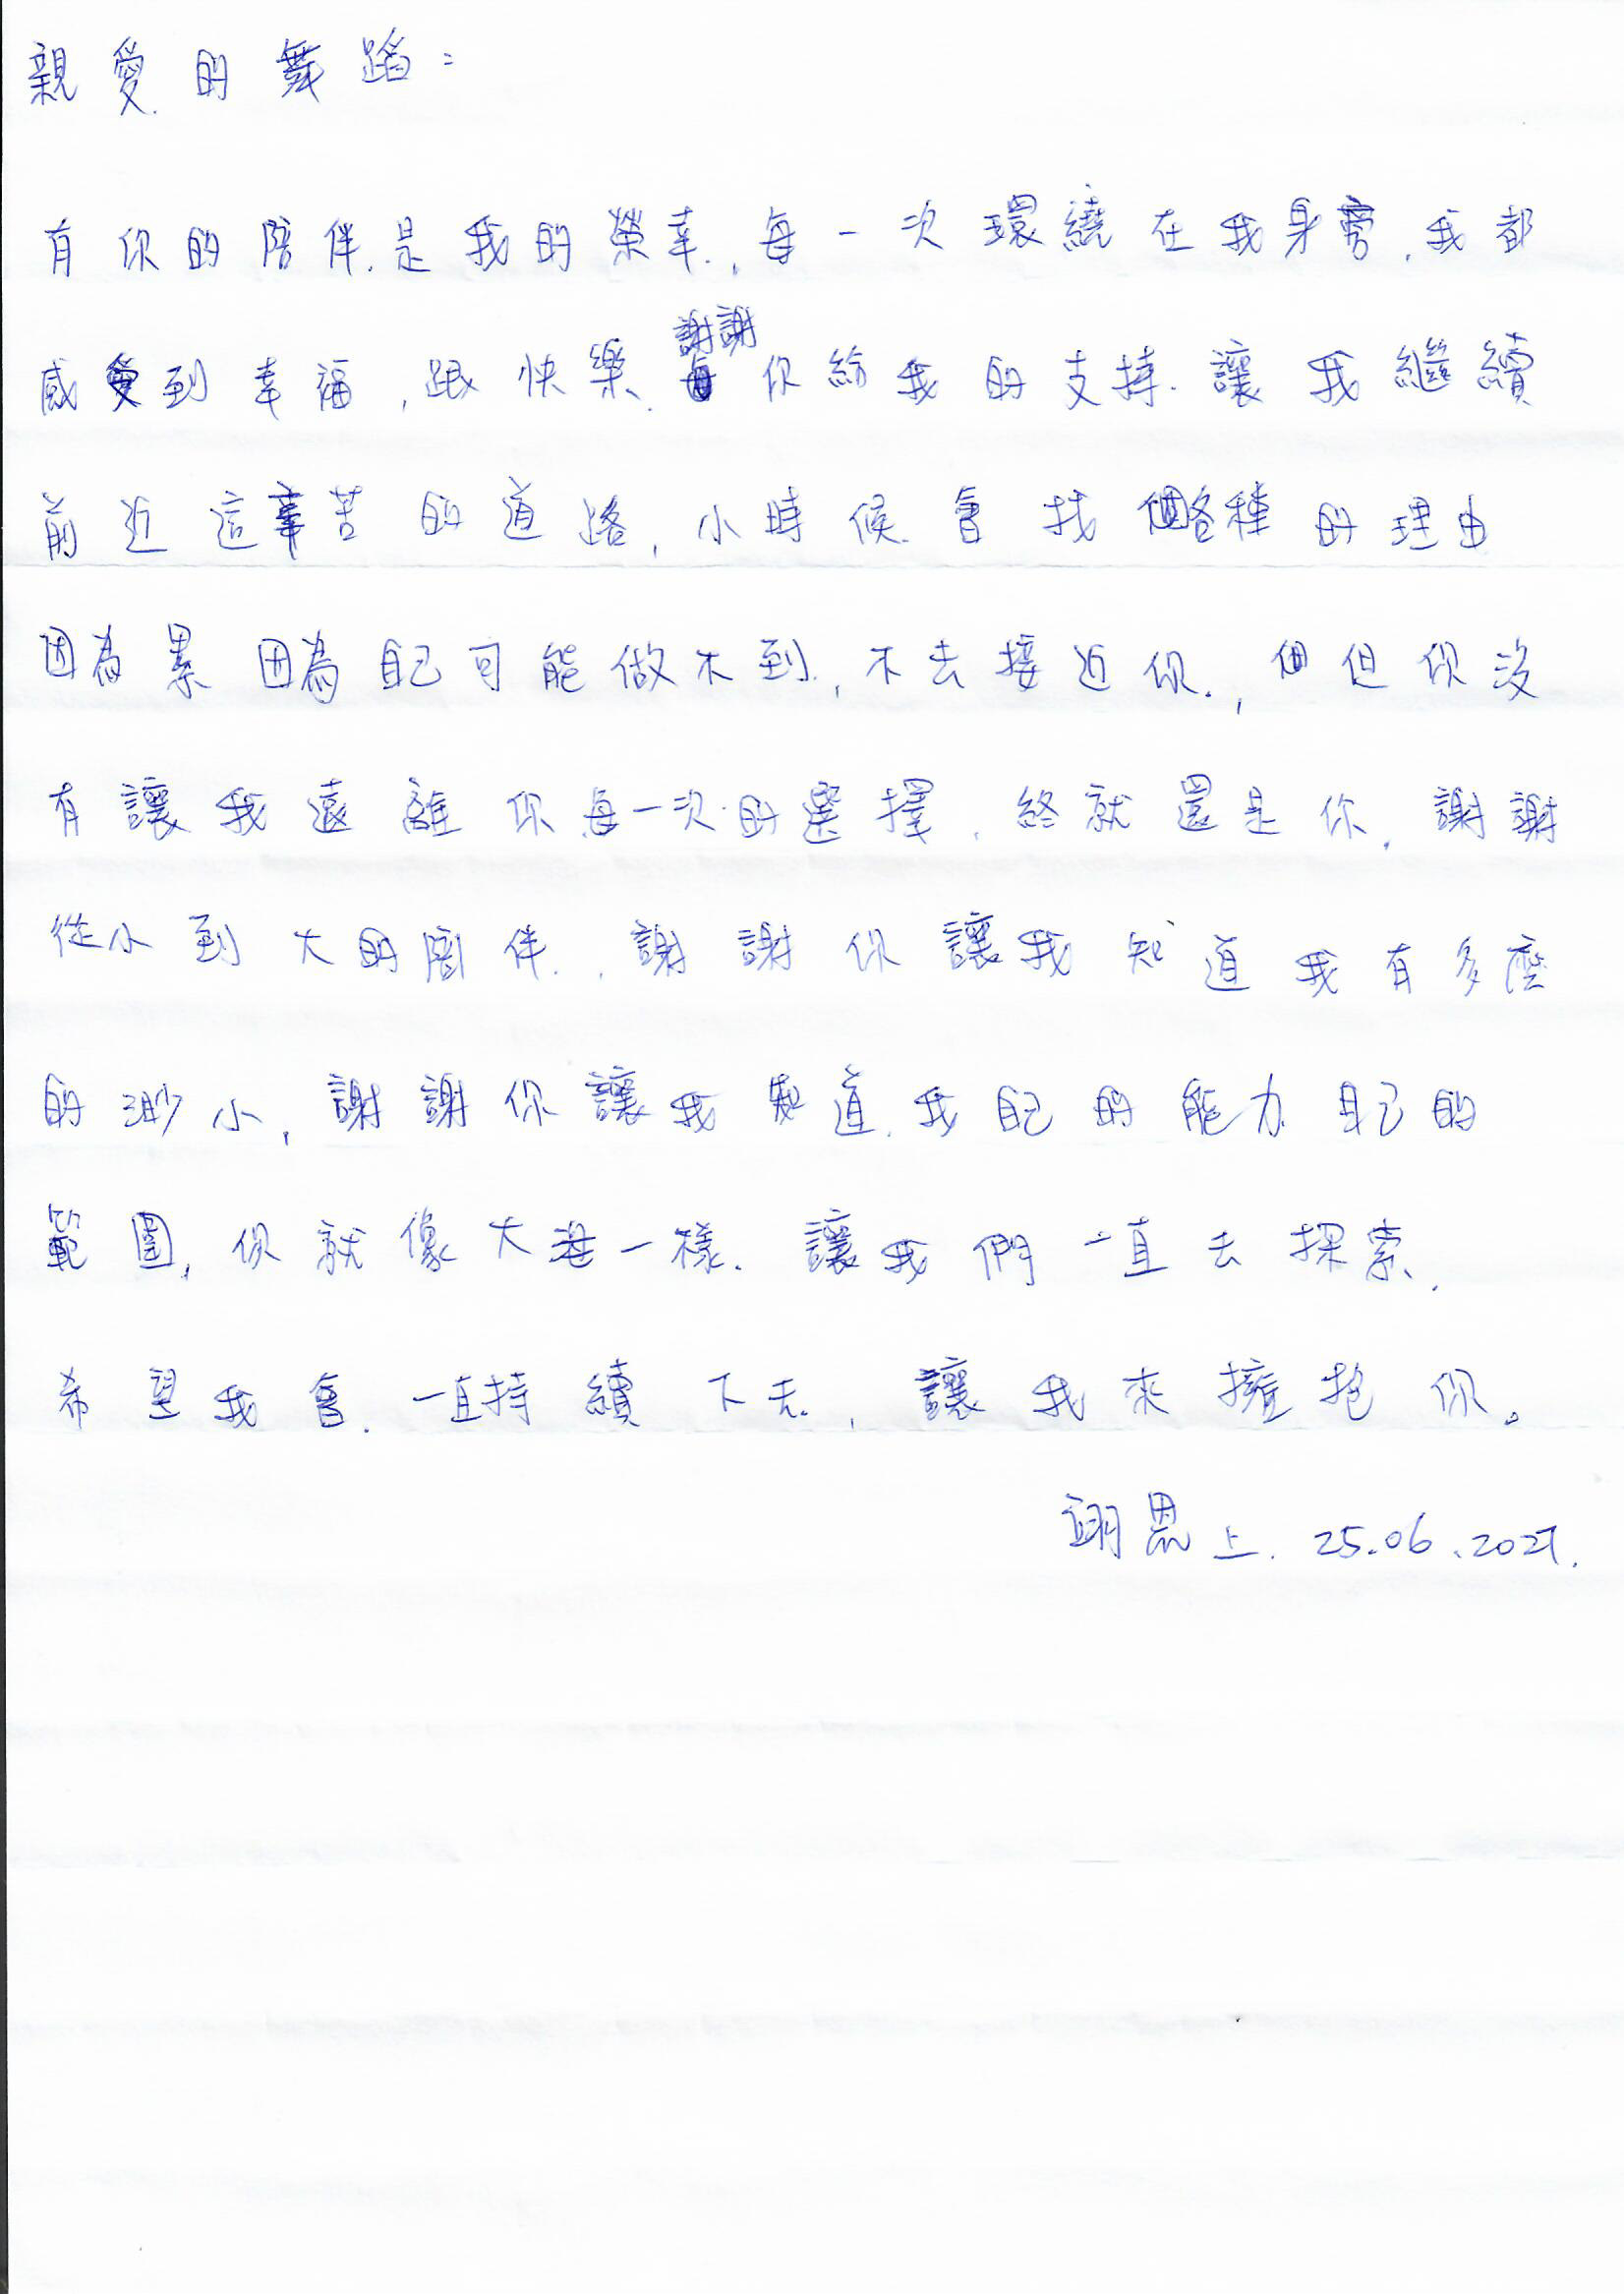 親愛的舞蹈：
有你的陪伴是我的榮幸，每一次環繞在我身旁，我都
感受到幸福，跟快樂，謝謝你給我的支持，讓我繼續
前近這辛苦的道路，小時候會找各種的理由
因為累因為自己可能做不到，不去接近你，但你沒
有讓我遠離你每一次的選擇，終就還是你，謝謝
從小到大的陪伴，謝謝你讓我知道我有多麼
的渺小，謝謝你讓我知道，我自己的能力自己的
範圍，你就像大海一樣，讓我們一直去探索，
希望我會一直持續下去，讓我來擁抱你。
翊恩上. 25.06.2021.